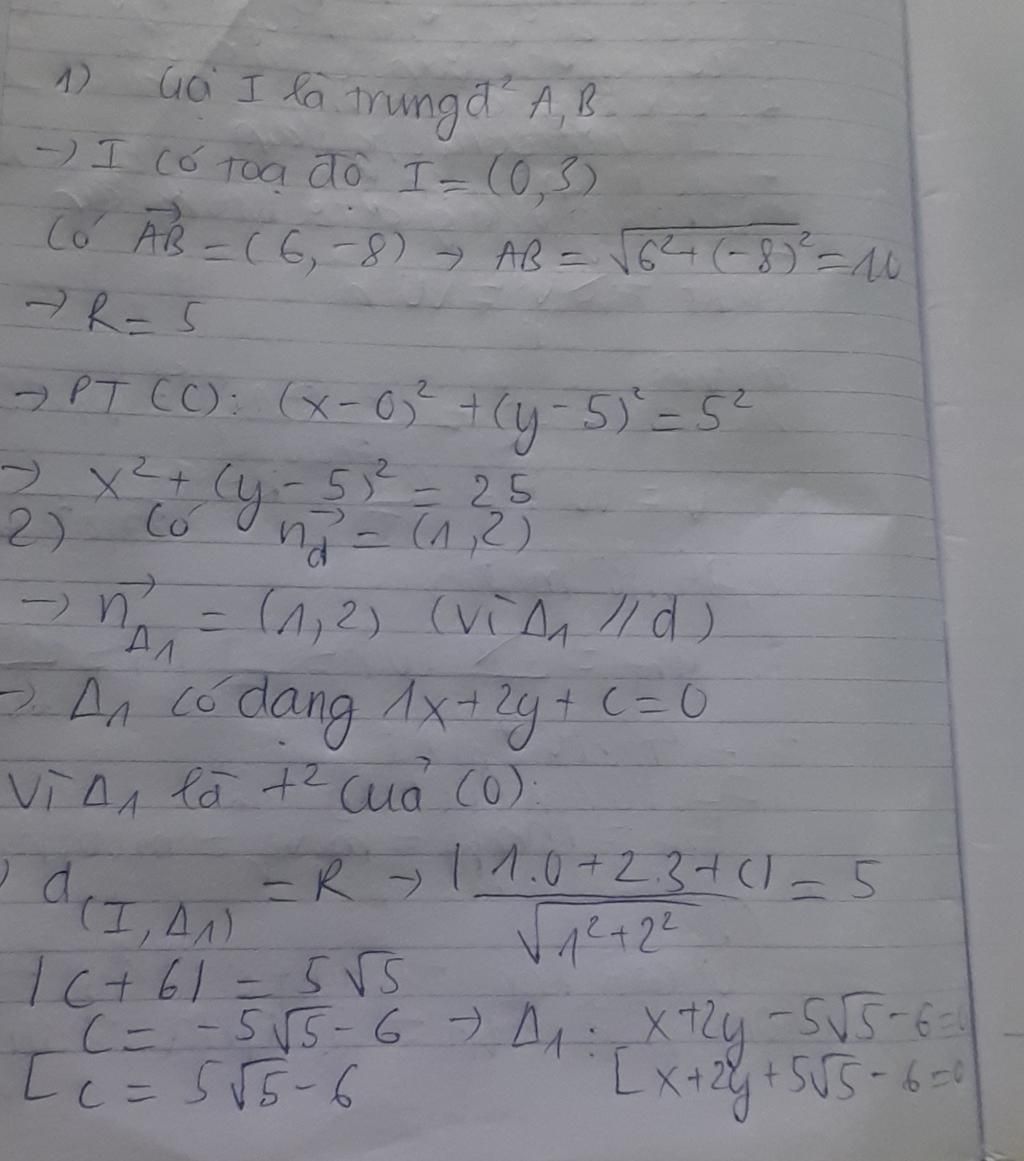 1) Gọi I là trung đ² A, B
→ I có toạ độ I = (0,3)
Có \vec{AB} = (6, -8) → AB = √(6² + (-8)²) = 10
→ R = 5
→ PT (C): (x - 0)² + (y - 5)² = 5²
→ x² + (y - 5)² = 25
2) Có \vec{n_d} = (1,2)
→ \vec{n_{Δ1}} = (1,2) (vì Δ1 // d)
→ Δ1 có dạng 1x + 2y + c = 0
Vì Δ1 là t² của (O):
d(I, Δ1) = R → |1.0 + 2.3 + C| / √(1² + 2²) = 5
|C + 6| = 5√5
[ C = -5√5 - 6 → Δ1: [ x + 2y - 5√5 - 6 = 0
C = 5√5 - 6 x + 2y + 5√5 - 6 = 0